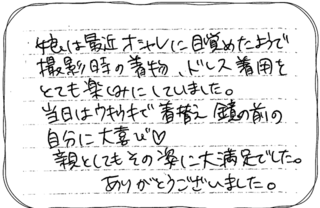 娘は最近オシャレに目覚めたようで
撮影時の着物、ドレス着用を
とても楽しみにしていました。
当日はウキウキで着替え 鏡の前の
自分に大喜び♡
親としてもその姿に大満足でした。
ありがとうございました。